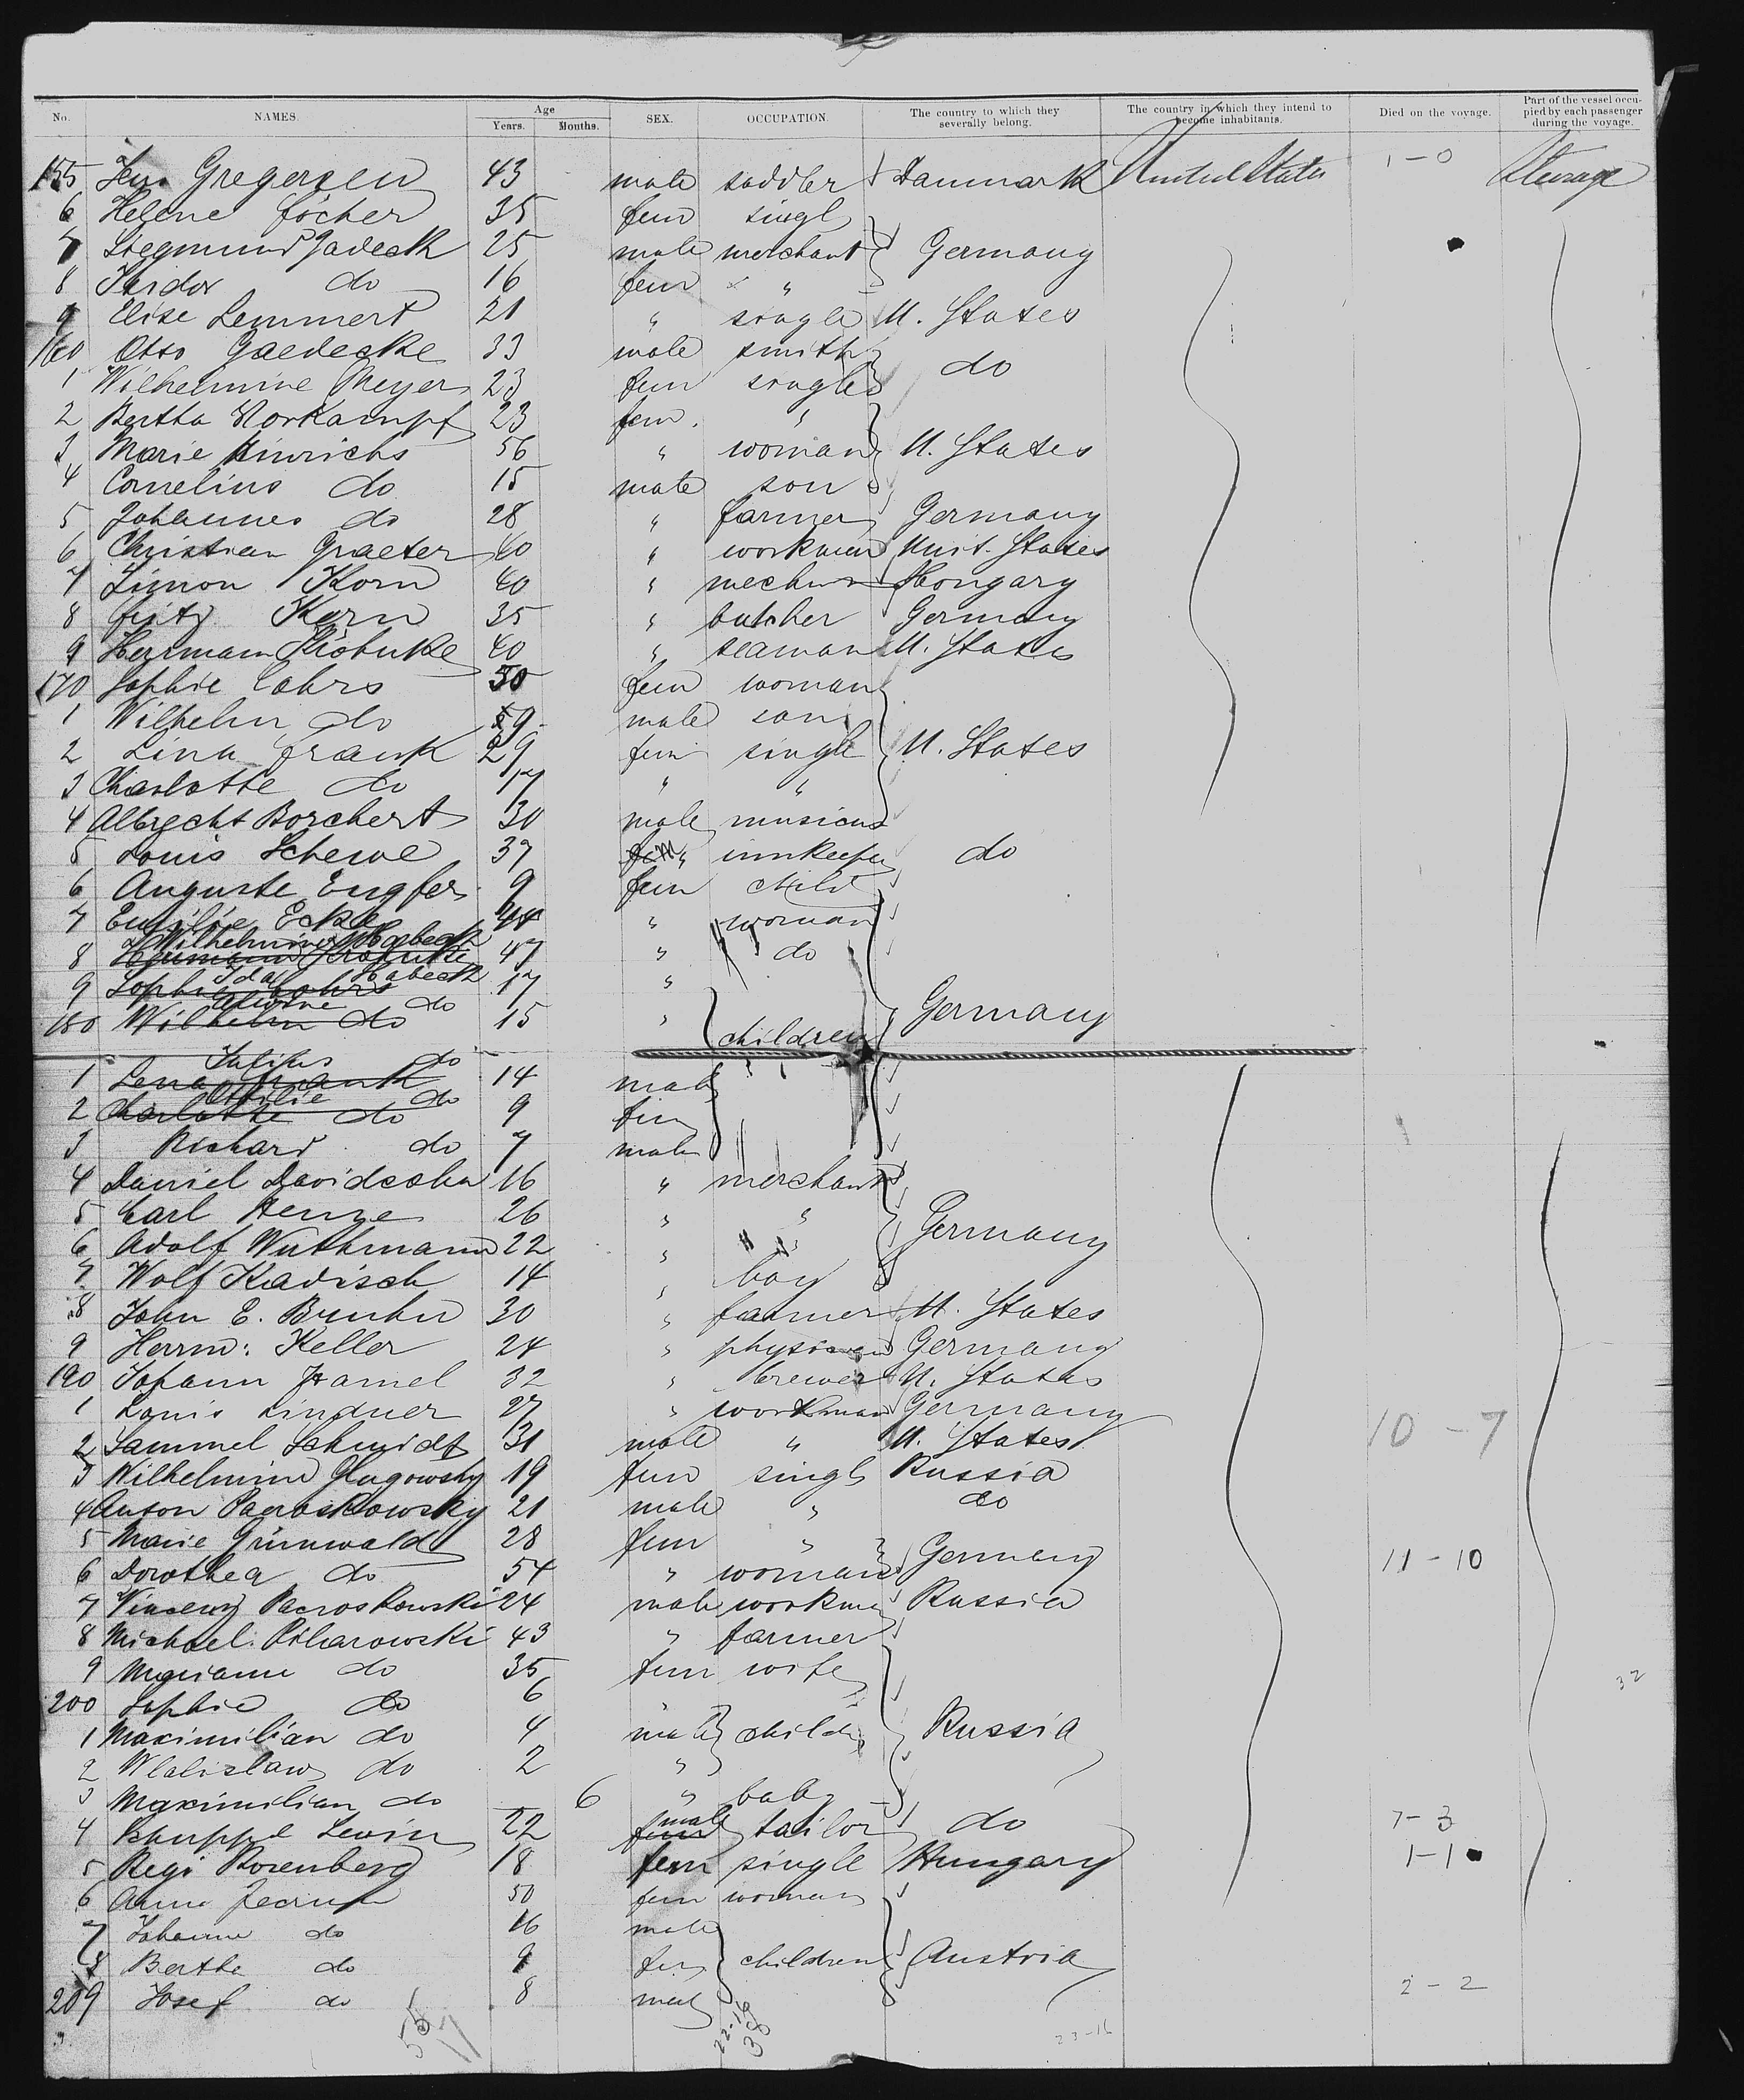 No. NAMES. Age Years. Months. SEX. OCCUPATION. The country to which they severally belong. The country in which they intend to become inhabitants. Died on the voyage. Part of the vessel occupied by each passenger during the voyage.
155 Jens Gregersen 43 male saddler Danmark United States 1-0 Steerage
6 Helene Föcher 35 fem singl
7 Siegmund Gadeck 25 male merchant Germany
8 Isidor do 16 fem "
9 Elise Lemmert 21 " single U. States
160 Otto Gaedecke 33 male smith do
1 Wilhelmine Meyer 23 fem single
2 Bertha Norkampf 23 fem. "
3 Marie Hinrichs 56 " woman U. States
4 Cornelius do 15 male son
5 Johannes do 28 " farmer Germany
6 Christian Graeter 40 " workman Unit. States
7 Simon Korn 40 " Hongary
8 Fritz Kern 35 " butcher Germany
9 Hermann 40 " seaman U. States
170 Sophie Cohrs 50 fem woman
1 Wilhelm do 9 male son
2 Lina Frank 29 fem single U. States
3 Charlotte do 17 " "
4 Albrecht Borchert 30 male musicus
5 Louis Schewe 37 " innkeeper do
6 Auguste Engfer 9 fem child
7 Emilie Ecke 44 " woman
8 Wilhelmine Habeck 47 " do
9 Ida Habeck 17 "
180 do 15 " children Germany
1 Julius do 14 male
2 Ottilie do 9 fem
3 Richard do 7 male
4 Daniel Davidsohn 16 " merchant
5 Carl Henze 26 " " Germany
6 Adolf Wuthmann 22 " "
7 Wolf Kadisch 14 " boy
8 John E. 30 " farmer U. States
9 Herrm: Keller 24 " physician Germany
190 Johann Hamel 32 " brewer U. States
1 Louis Lindner 27 " workman Germany 10-7
2 Sammel Schmidt 31 male " U. States
3 Wilhelmine 19 fem singl Russia
4 Anton Pacroskowsky 21 male " do
5 Marie Grünwald 28 fem " Germany
6 Dorothea do 54 " woman 11-10
7 Vincenz Pacroskowski 24 male workman Russia
8 Michael Pilarowski 43 " farmer
9 Marianne do 35 fem wife
32
200 Sophie do 6
1 Maximilian do 4 male child Russia
2 Wladislaw do 2 "
3 Maximilian do 6 " baby
4 Lewin 22 male tailor do 7-3
5 Regi Rosenberg 18 fem single Hungary 1-1
6 Anna 50 fem woman
7 Johann do 16 male
8 Bertha do 9 fem children Austria
209 Josef do 8 male 2-2
55
17
22-16
38
23-16